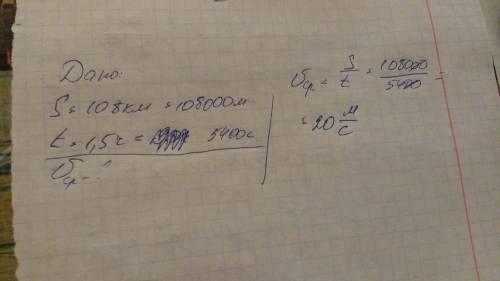 Дано:
S = 108км = 108000м
t = 1,5ч = 5400с
Vср - ?
Vср = S/t = 108000/5400 =
= 20 м/с